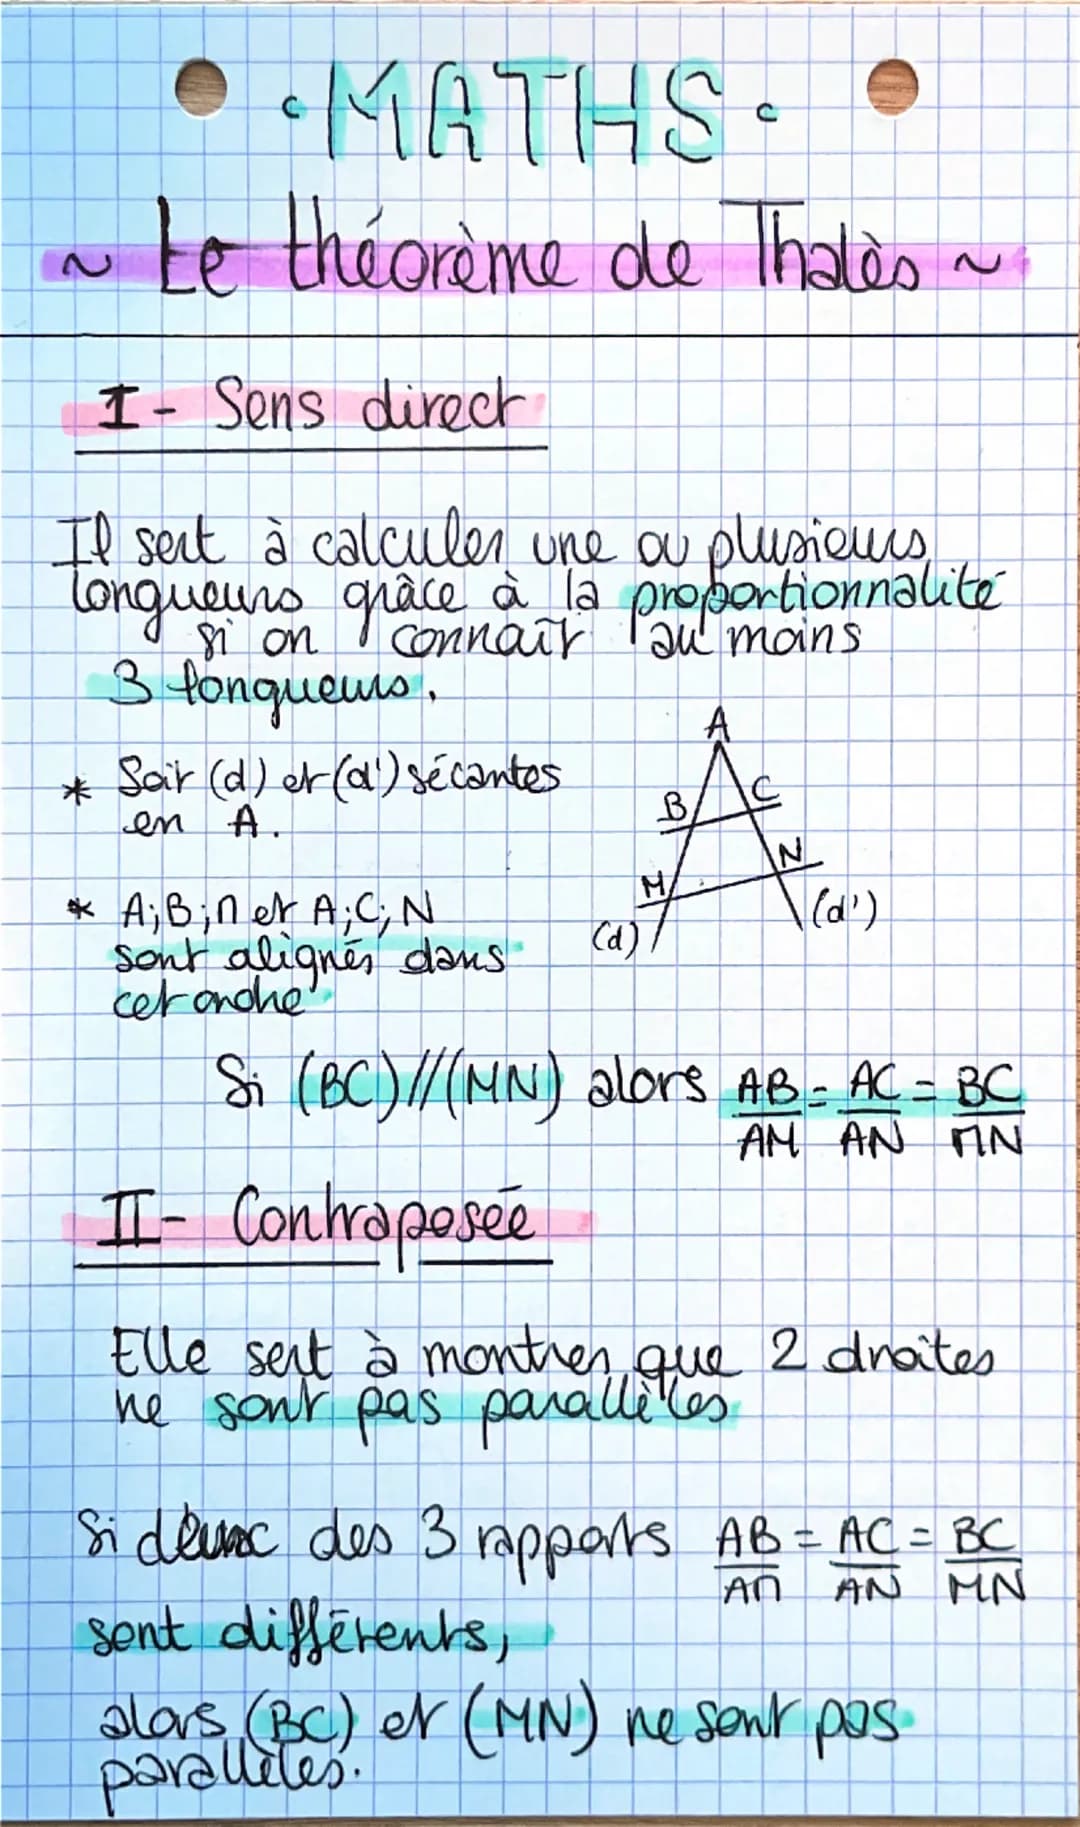 • MATHS •
~ Le théorème de Thalès ~
I - Sens direct
Il sert à calculer une ou plusieurs
longueurs grâce à la proportionnalité
si on connaît au moins
3 longueurs.
* Soit (d) et (d') sécantes
en A.
* A;B;M et A;C;N
sont alignés dans
cet ordre
A
B
C
M
N
(d)
(d')
Si (BC)//(MN) alors AB/AM = AC/AN = BC/MN
II - Contraposée
Elle sert à montrer que 2 droites
ne sont pas parallèles
Si deux des 3 rapports AB/AM = AC/AN = BC/MN
sont différents,
alors (BC) et (MN) ne sont pas
parallèles.